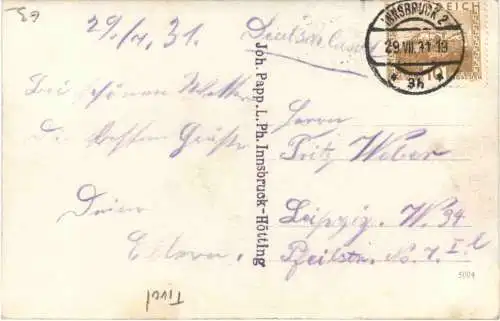 59
29./7. 31.
Deutschland
INNSBRUCK 2
29.VII.31.18
* 3h *
REICH
Bei schönem Wetter
Die besten Grüße
Deine
Eltern.
Joh. Papp. L. Ph. Innsbruck-Hötting
Herrn
Fritz Weber
Leipzig. W. 34
Pfeilstr. No. 7. I. l
5004
Tirol